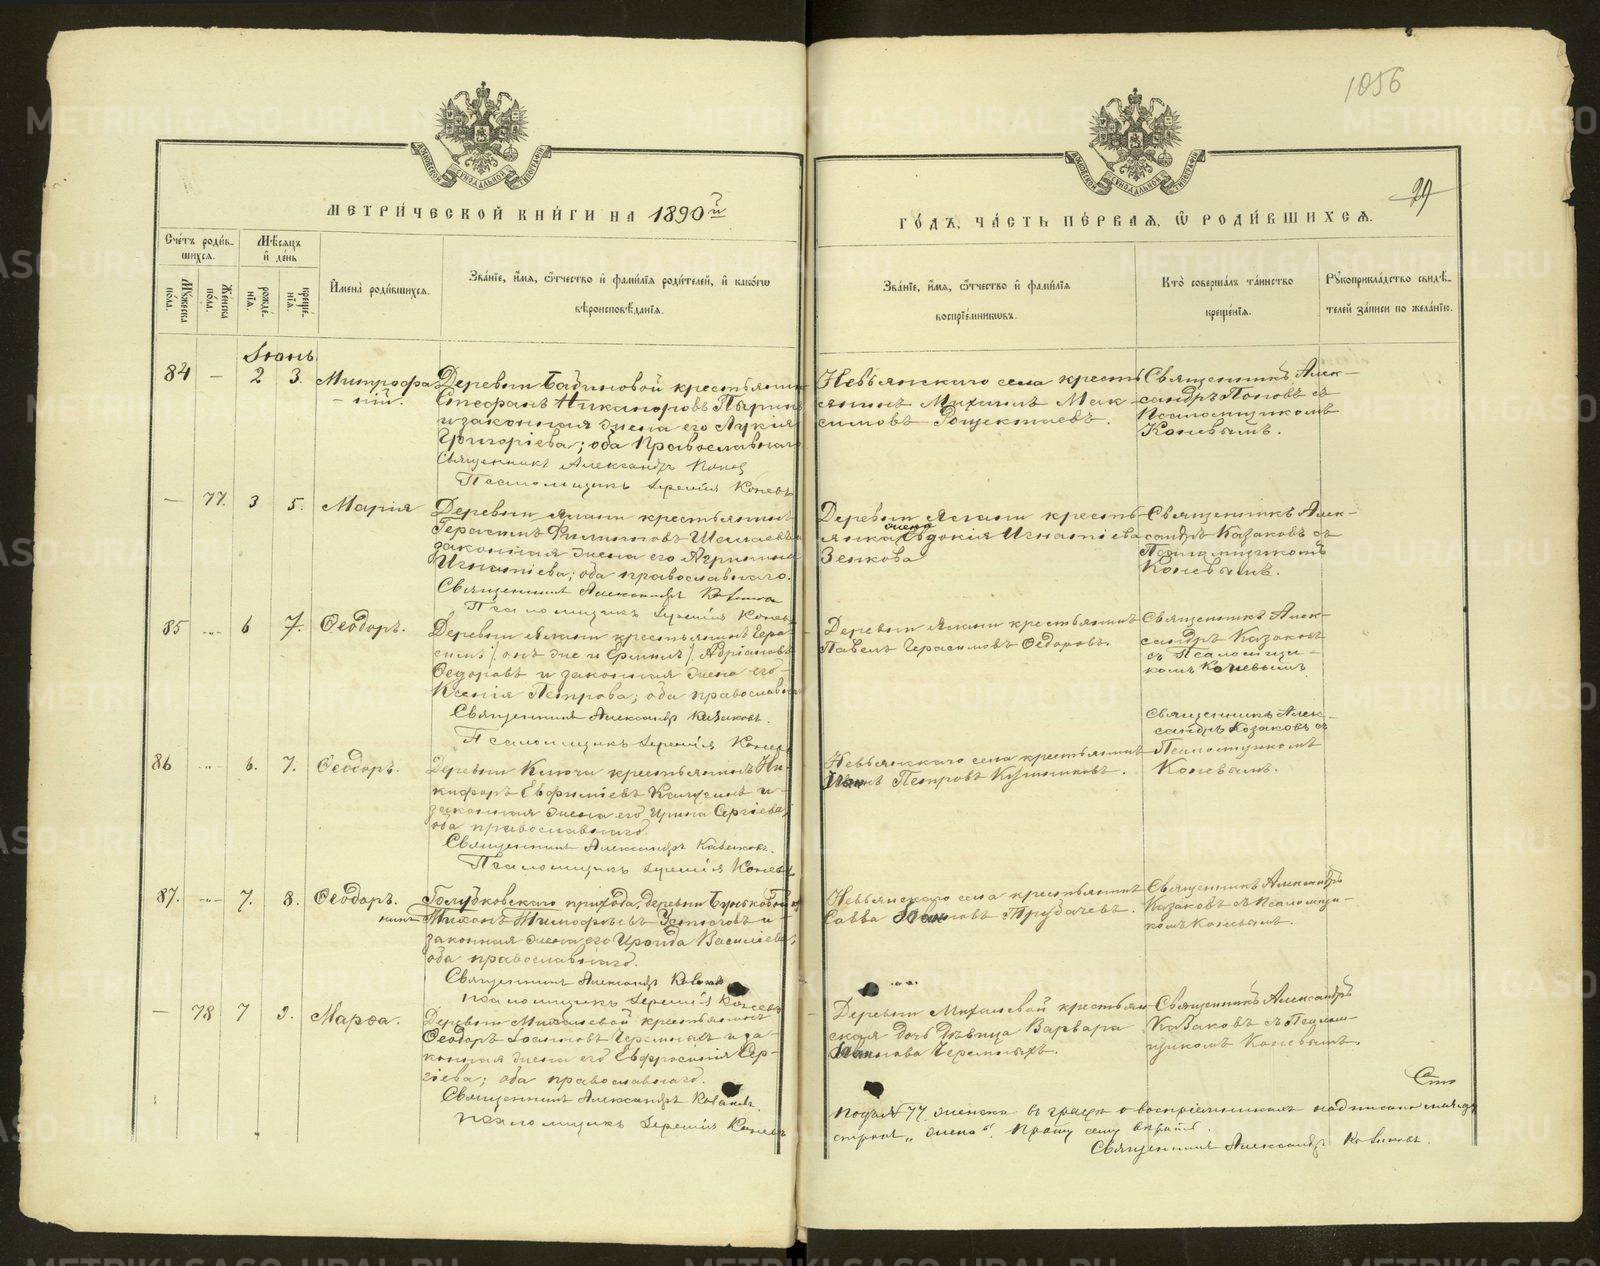 1056
29
МЕТРИ́ЧЕСКОЙ КНИ́ГИ НА 1890й
ГО́ДЪ, ЧА́СТЬ ПЕ́РВАЯ, Ѿ РОДИ́ВШИХСЯ.
Сче́тъ роди́в-
шихся.
Мѣсяцъ
и̑ де́нь
Мꙋжеска
по́ла.
Же́нска
по́ла.
рожде́-
нїя.
креще́-
нїя.
И̑мена̀ роди́вшихся.
Зва́нїе, и̑́мя, ѻ҆́тчество и̑ фами́лїя роди́телей, и̑ како́гѡ
вѣроисповѣ́данїя.
Зва́нїе, и̑́мя, ѻ҆́тчество и̑ фами́лїя
воспрїе́мникѡвъ.
Кто̀ соверша́лъ та́инство
креще́нїя.
Рꙋкоприкла́дство свидѣ́-
телей за́писи по жела́нїю.
Іюнь.
84 — 2 3. Митрофа-
ній.
Деревни крестьянинъ
Стефанъ Никаноровъ
и законная жена его Лукія
Григоріева; оба Православнаго
Священникъ Александръ Поповъ
Псаломщикъ Іеремія Коневъ
Невьянскаго села кресть-
янинъ Михаилъ Мак-
симовъ
Священникъ Алек-
сандръ Поповъ съ
Псаломщикомъ
Коневымъ.
— 77. 3 5. Марія
Деревни Ялани крестьянинъ
Герасимъ Филипповъ
законная жена его
Игнатіева; оба православнаго.
Священникъ Александръ Казаковъ
Псаломщикъ Іеремія Коневъ
Деревни Ялани кресть-
янка жена Евдокія Игнатіева
Зенкова
Священникъ Алек-
сандръ Казаковъ съ
Псаломщикомъ
Коневымъ.
85 „ 6 7. Ѳеодоръ.
Деревни Ялани крестьянинъ Гера-
симъ /онъ же и Ермилъ/ Адріановъ
Ѳедоровъ и законная жена его
Ксенія Петрова; оба православнаго
Священникъ Александръ Казаковъ.
Псаломщикъ Іеремія Коневъ
Деревни Ялани крестьянинъ
Павелъ Герасимовъ Ѳедоровъ.
Священникъ Алек-
сандръ Казаковъ
съ Псаломщи-
комъ Коневымъ
86 „ 6. 7. Ѳеодоръ.
Деревни Ключи крестьянинъ Ни-
кифоръ Евфиміевъ и
законная жена его Ирина Сергіева,
оба православнаго
Священникъ Александръ Казаковъ.
Псаломщикъ Іеремія Коневъ
Невьянскаго села крестьянинъ
Иванъ Петровъ
Священникъ Алек-
сандръ Казаковъ съ
Псаломщикомъ
Коневымъ.
87. „ 7. 8. Ѳеодоръ.
Голубковскаго прихода, деревни
Тихонъ Тимофѣевъ и
законная жена его Ироида Василіева;
оба православнаго.
Священникъ Александръ Казаковъ
Псаломщикъ Іеремія Коневъ
Невьянскаго села крестьянинъ
Савва Іоанновъ Трубачевъ.
Священникъ Александръ
Казаковъ съ Псаломщи-
комъ Коневымъ.
— 78 7 9. Марѳа.
Деревни Михалевой крестьянинъ
Ѳеодоръ Іоанновъ Черемныхъ и за-
конная жена его Евфросинія Сер-
гіева; оба православнаго.
Священникъ Александръ Казаковъ.
Псаломщикъ Іеремія Коневъ
Деревни Михалевой крестьян-
ская дочь дѣвица Варвара
Іоаннова Черемныхъ.
Священникъ Александръ
Казаковъ съ Псалом-
щикомъ Коневымъ.
Подъ № 77 женска въ графѣ о воспріемникахъ надписано между
строкъ „жена". Прошу сему вѣрить.
Священникъ Александръ Казаковъ.